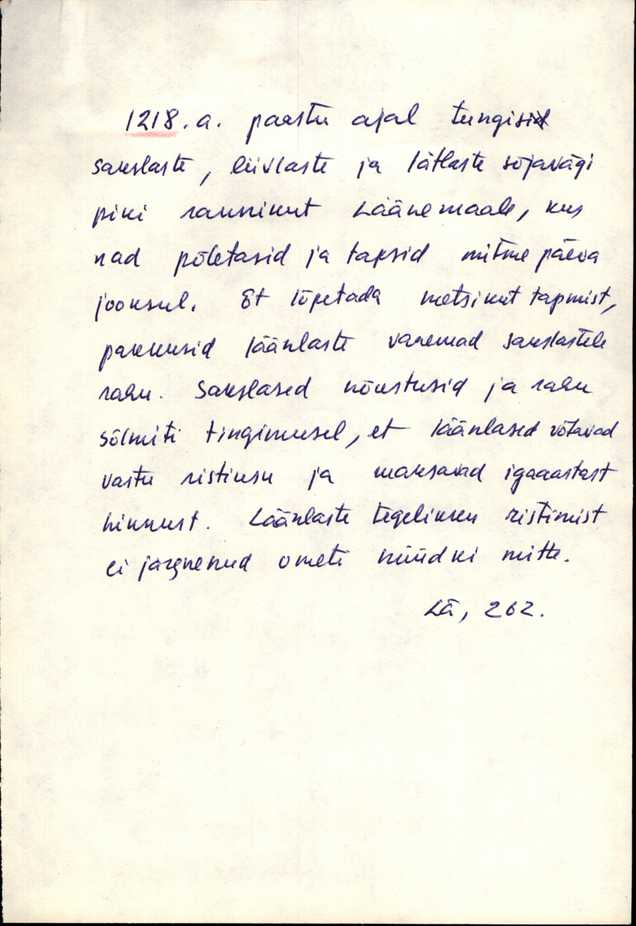 1218. a. paastu ajal tungisid
sakslaste, liivlaste ja lätlaste sõjavägi
piki rannikut Läänemaale, kus
nad põletasid ja tapsid mitme päeva
jooksul. Et lõpetada metsikut tapmist,
pakkusid läänlaste vanemad sakslastele
rahu. Sakslased nõustusid ja rahu
sõlmiti tingimusel, et läänlased võtavad
vastu ristiusu ja maksavad igaaastast
hinnust. Läänlaste tegelikku ristimist
ei järgnenud ometi nüüdki mitte.
Lä, 262.